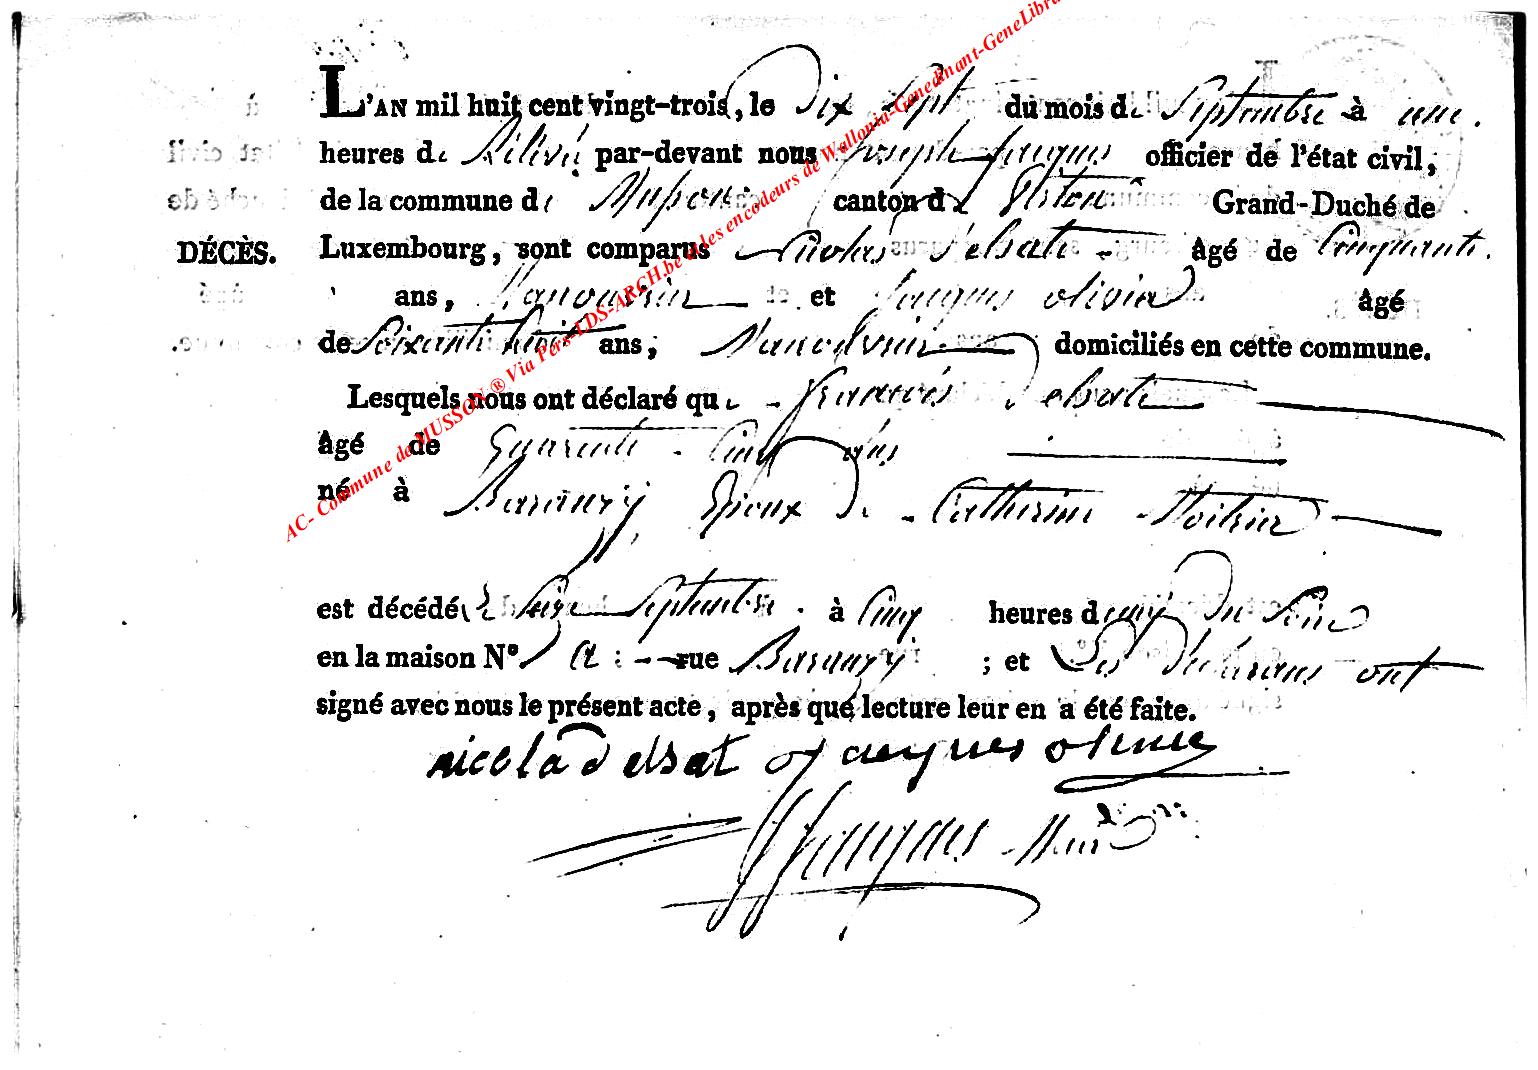 L'AN mil huit cent vingt-trois, le Dix Sept du mois de Septembre à une
heures de Rélévé par-devant nous Joseph Jacques officier de l'état civil,
de la commune de Musson canton de Virton Grand-Duché de
DÉCÈS. Luxembourg, sont comparus Nicolas Delsate âgé de Cinquante
ans, Manouvrier et Jacques olivier âgé
de Soixante huit ans, Manouvrier domiciliés en cette commune.
Lesquels nous ont déclaré que francois Delsate
âgé de quarente Cinq ans
né à Baranzy Epoux de Catherine
est décédé le Seize Septembre à Cinq heures du Soir
en la maison N° rue Baranzy ; et Les Déclarans ont
signé avec nous le présent acte, après que lecture leur en a été faite.
nicola delsat jacques olivie
JJacques Maire
AC- Commune de MUSSON ® Via Pers-LDS-ARCH.be et des encodeurs de Wallonia-Genedinant-GeneLibra